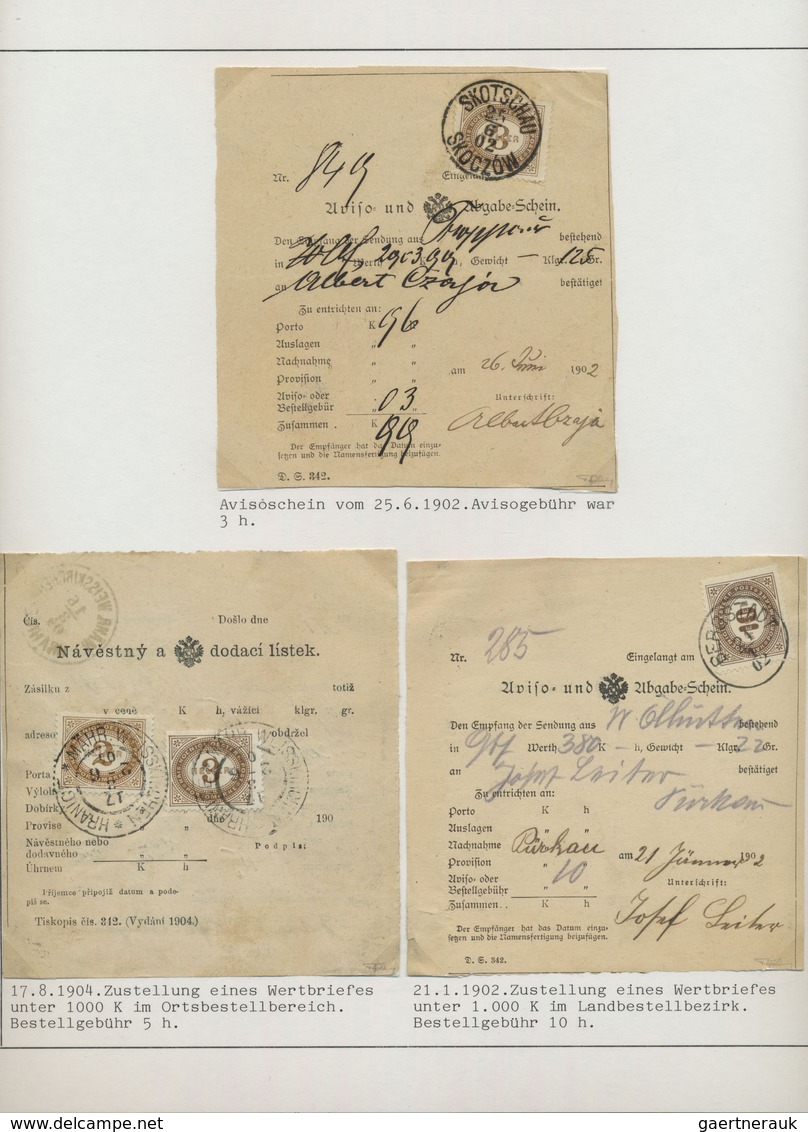 SKOTSCHAU
25
6
02
SKOCZÓW
3
Nr. 849
Aviso- und Abgabe-Schein.
Den Empfang der Sendung aus Troppau bestehend
in Werth 2903 99 h, Gewicht — Klgr. 125 Gr.
an Albert Czaja bestätigt
Zu entrichten an:
Porto K 96
Auslagen " "
Nachnahme " "
am 26. Juni 1902
Provision " "
Aviso- oder
Bestellgebür " 03
Unterschrift:
Zusammen . K 99
Albert Czaja
Der Empfänger hat das Datum einzu-
setzen und die Namensfertigung beizufügen.
D. S. 342.
Avisoschein vom 25.6.1902.Avisogebühr war
3 h.
Čís. Došlo dne
Návěstný a dodací lístek.
Zásilku z totiž
v ceně K h, vážící klgr. gr.
adreso obdržel
2
3
MÄHR. WEISSKIRCHEN
HRANICE
Porta
Dobírk
Provise " dne 190
Návěstného nebo
dodavného " "
Podpis:
Úhrnem K h
Příjemce připojiž datum a podo-
piš se.
Tiskopis čís. 342. (Vydání 1904.)
17.8.1904.Zustellung eines Wertbriefes
unter 1000 K im Ortsbestellbereich.
Bestellgebühr 5 h.
10
02
Nr. 285 Eingelangt am
Aviso- und Abgabe-Schein.
Den Empfang der Sendung aus bestehend
in Werth 380 K — h, Gewicht — Klgr. 22 Gr.
an Josef Leiter bestätigt
Zu entrichten an:
Porto K h
Auslagen " "
Nachnahme " "
Pürkau
am 21 Jänner 1902
Provision " "
Aviso- oder 10
Bestellgebühr " "
Unterschrift:
Zusammen . . K h
Josef Leiter
Der Empfänger hat das Datum einzu-
setzen und die Namensfertigung beizufügen.
D. S. 342.
21.1.1902.Zustellung eines Wertbriefes
unter 1.000 K im Landbestellbezirk.
Bestellgebühr 10 h.
gaertnerauk